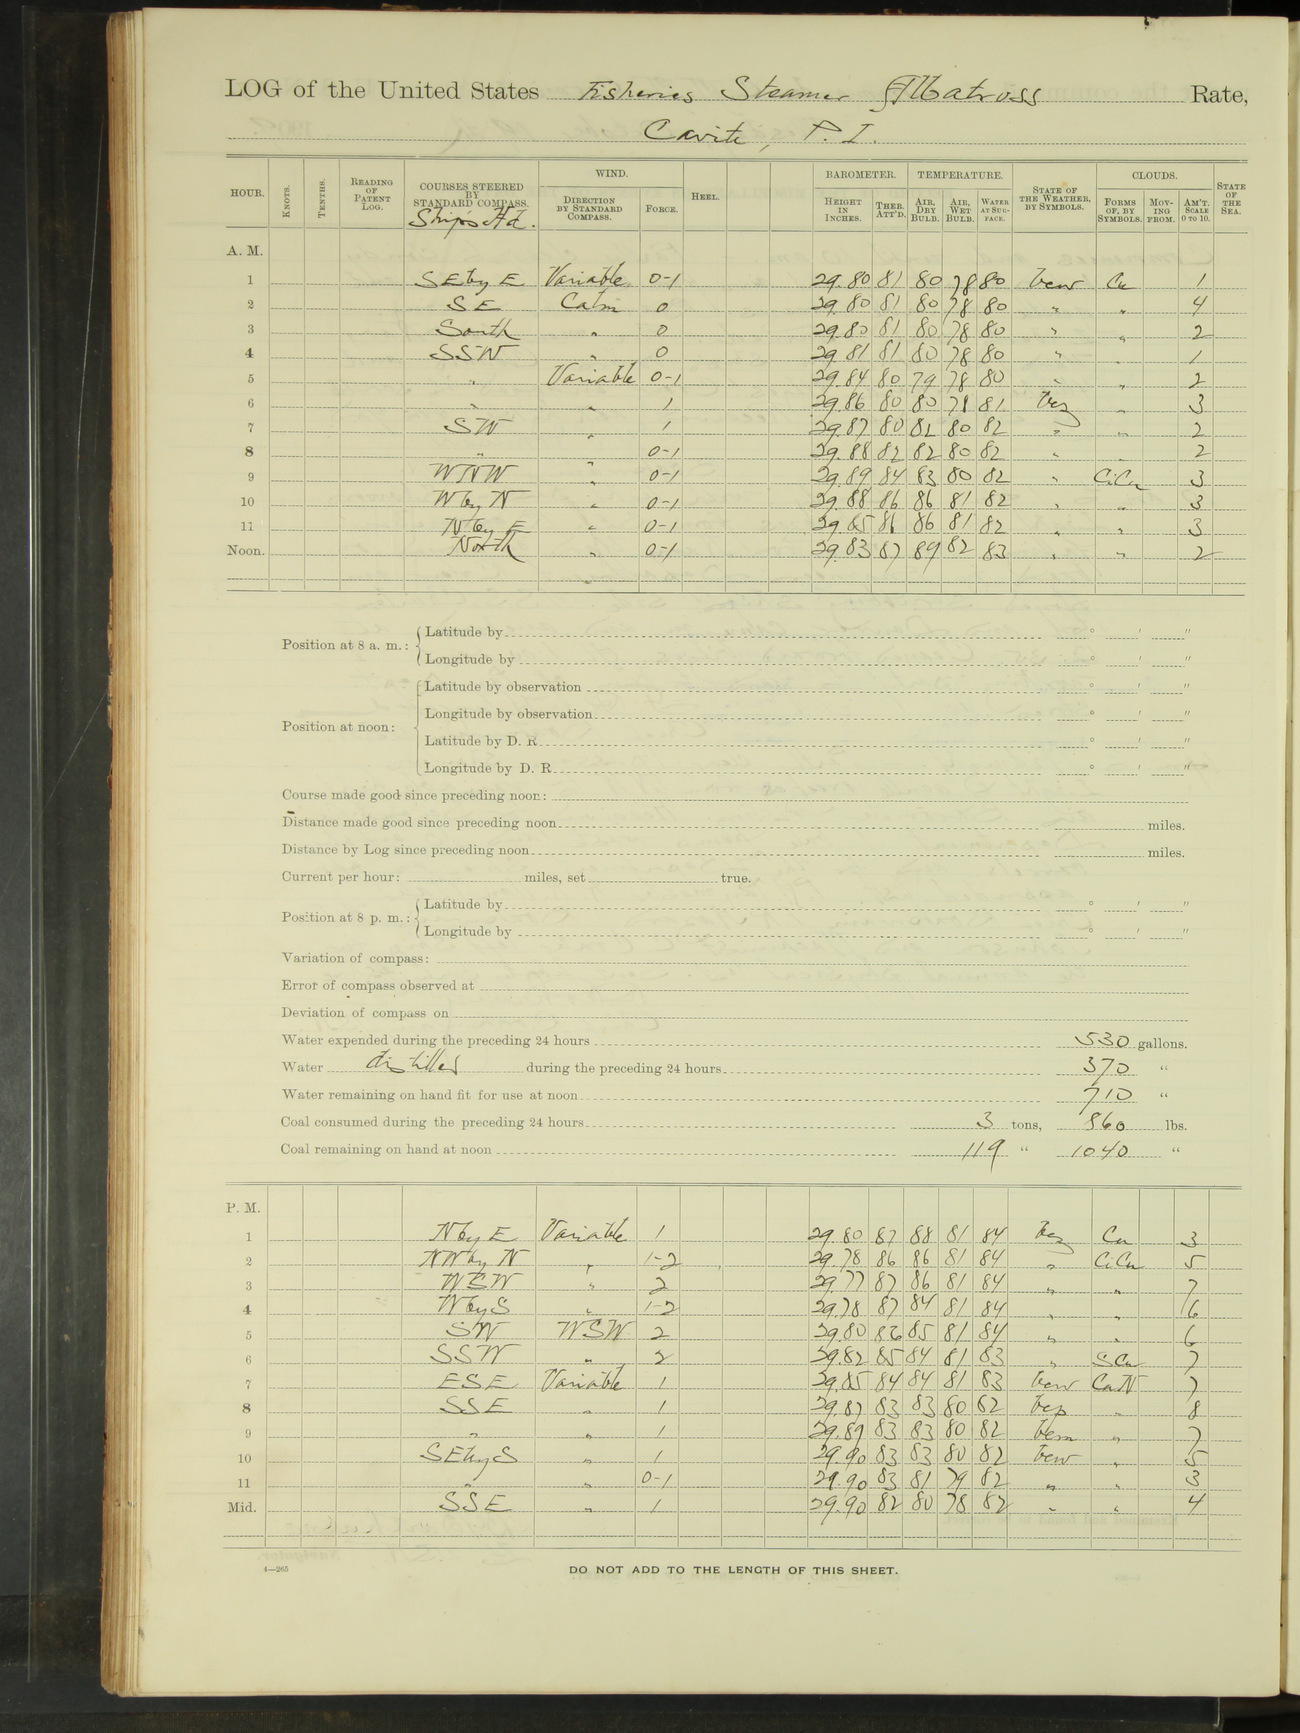 LOG of the United States Fisheries Steamer Albatross Rate,
Cavite, P. I.
HOUR. KNOTS. TENTHS. READING OF PATENT LOG. COURSES STEERED BY STANDARD COMPASS. Ship's Hd. WIND. DIRECTION BY STANDARD COMPASS. FORCE. HEEL. BAROMETER. HEIGHT IN INCHES. THER. ATT'D. TEMPERATURE. AIR, DRY BULB. AIR, WET BULB. WATER AT SURFACE. STATE OF THE WEATHER, BY SYMBOLS. CLOUDS. FORMS OF, BY SYMBOLS. MOVING FROM. AM'T. SCALE 0 TO 10. STATE OF THE SEA.
A. M.
1 SE by E Variable 0-1 29.80 81 80 78 80 bcw Cu 1
2 SE Calm 0 29.80 81 80 78 80 " " 4
3 South " 0 29.80 81 80 78 80 " " 2
4 SSW " 0 29.81 81 80 78 80 " " 1
5 " Variable 0-1 29.84 80 79 78 80 " " 2
6 " " 1 29.86 80 80 78 81 bcz " 3
7 SW " 1 29.87 80 82 80 82 " " 2
8 " " 0-1 29.88 82 82 80 82 " " 2
9 WNW " 0-1 29.89 84 83 80 82 " CiCu 3
10 W by N " 0-1 29.88 86 86 81 82 " " 3
11 N by E " 0-1 29.85 86 86 81 82 " " 3
Noon. North " 0-1 29.83 87 89 82 83 " " 2
Position at 8 a. m.: Latitude by ° ′ ″
Longitude by ° ′ ″
Position at noon: Latitude by observation ° ′ ″
Longitude by observation ° ′ ″
Latitude by D. R. ° ′ ″
Longitude by D. R. ° ′ ″
Course made good since preceding noon:
Distance made good since preceding noon miles.
Distance by Log since preceding noon miles.
Current per hour: miles, set true.
Position at 8 p. m.: Latitude by ° ′ ″
Longitude by ° ′ ″
Variation of compass:
Error of compass observed at
Deviation of compass on
Water expended during the preceding 24 hours 530 gallons.
Water distilled during the preceding 24 hours 370 "
Water remaining on hand fit for use at noon 710 "
Coal consumed during the preceding 24 hours 3 tons, 860 lbs.
Coal remaining on hand at noon 119 " 1040 "
P. M.
1 N by E Variable 1 29.80 87 88 81 84 bcz Cu 3
2 NW by N " 1-2 29.78 86 86 81 84 " CiCu 5
3 WSW " 2 29.77 87 86 81 84 " " 7
4 W by S " 1-2 29.78 87 84 81 84 " " 6
5 SW WSW 2 29.80 86 85 81 84 " " 6
6 SSW " 2 29.82 85 84 81 83 " SCu 7
7 ESE Variable 1 29.85 84 84 81 83 bcw CuN 7
8 SSE " 1 29.87 83 83 80 82 bcp " 8
9 " " 1 29.89 83 83 80 82 bcm " 7
10 SE by S " 1 29.90 83 83 80 82 bcw " 5
11 " " 0-1 29.90 83 81 79 82 " " 3
Mid. SSE " 1 29.90 82 80 78 82 " " 4
4—265
DO NOT ADD TO THE LENGTH OF THIS SHEET.